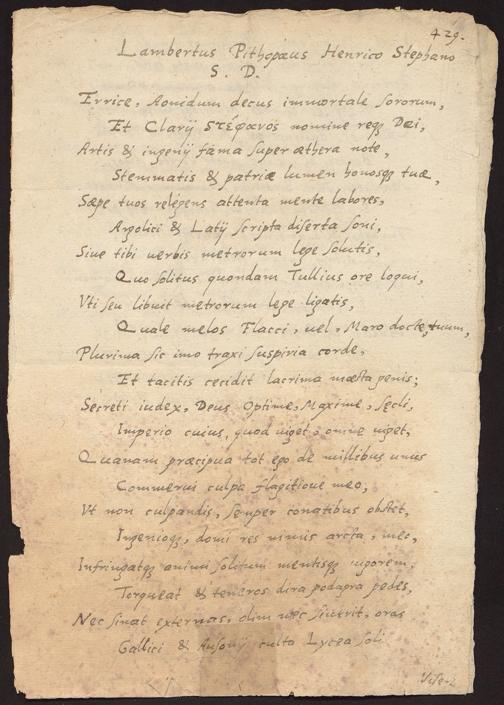 429.
Lambertus Pithopœus Henrico Stephano
S. D.
Errice, Aonidum decus immortale sororum,
Et Clarij στέφανος nomine reqꝫ Dei,
Artis & ingenij fama super æthera note,
Stemmatis & patriæ lumen honosqꝫ tuæ,
Sæpe tuos relegens attenta mente labores,
Argolici & Latij scripta diserta soni,
Siue tibi uerbis metrorum lege solutis,
Quo solitus quondam Tullius ore loqui,
Vti seu libuit metrorum lege ligatis,
Quale melos Flacci, uel, Maro docte, tuum,
Plurima sic imo traxi suspiria corde,
Et tacitis cecidit lacrima mœsta genis;
Secreti iudex, Deus Optime, Maxime, secli,
Imperio cuius, quod uiget omne uiget,
Quanam præcipua tot ego de millibus unus
Commerui culpa flagitioue meo,
Vt non culpandis, semper conatibus obstet,
Ingenioqꝫ, domi res nimis arcta, meo,
Infringatqꝫ animi solitum mentisqꝫ uigorem,
Torqueat & teneros dira podagra pedes,
Nec sinat externas, olim nec siuerit, oras
Gallici & Ausonij culta Lycea soli